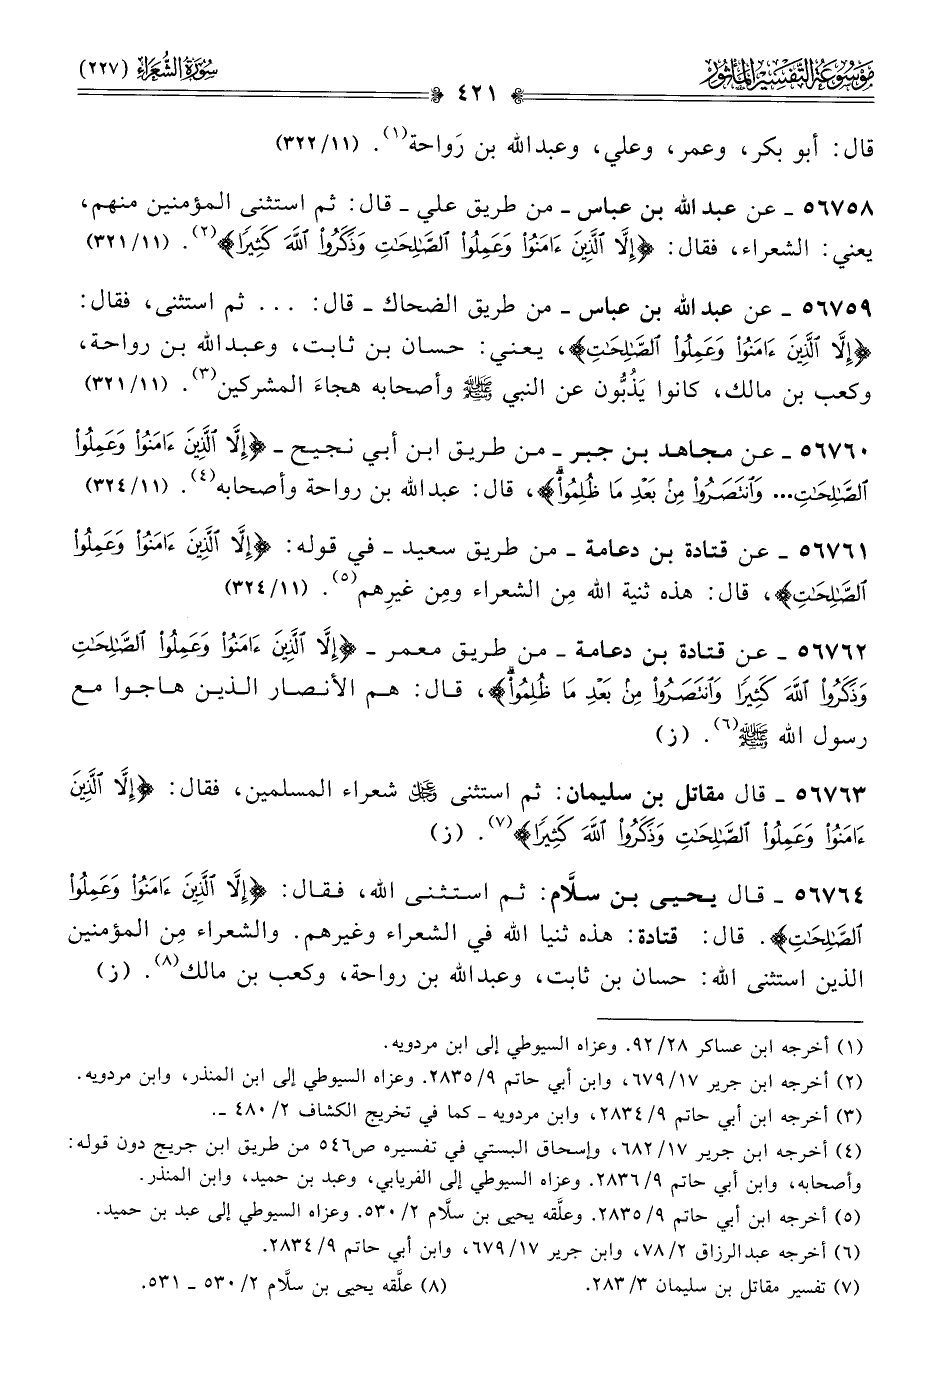 مَوْسُوعَة التَّفْسِير المَأْثُور
٤٢١
سُورَةُ الشُّعَرَاء (٢٢٧)
قال: أبو بكر، وعمر، وعلي، وعبدالله بن رَواحة(١). (٣٢٢/١١)
٥٦٧٥٨ ـ عن عبدالله بن عباس ـ من طريق علي ـ قال: ثم استثنى المؤمنين منهم،
يعني: الشعراء، فقال: ﴿إِلَّا ٱلَّذِينَ ءَامَنُوا۟ وَعَمِلُوا۟ ٱلصَّـٰلِحَـٰتِ وَذَكَرُوا۟ ٱللَّهَ كَثِيرًا﴾(٢). (٣٢١/١١)
٥٦٧٥٩ ـ عن عبدالله بن عباس ـ من طريق الضحاك ـ قال: ... ثم استثنى، فقال:
﴿إِلَّا ٱلَّذِينَ ءَامَنُوا۟ وَعَمِلُوا۟ ٱلصَّـٰلِحَـٰتِ﴾، يعني: حسان بن ثابت، وعبدالله بن رواحة،
وكعب بن مالك، كانوا يَذُبُّون عن النبي ﷺ وأصحابه هجاءَ المشركين(٣). (٣٢١/١١)
٥٦٧٦٠ ـ عن مجاهد بن جبر ـ من طريق ابن أبي نجيح ـ ﴿إِلَّا ٱلَّذِينَ ءَامَنُوا۟ وَعَمِلُوا۟
ٱلصَّـٰلِحَـٰتِ... وَٱنتَصَرُوا۟ مِنۢ بَعْدِ مَا ظُلِمُوا۟ۗ﴾، قال: عبدالله بن رواحة وأصحابه(٤). (٣٢٤/١١)
٥٦٧٦١ ـ عن قتادة بن دعامة ـ من طريق سعيد ـ في قوله: ﴿إِلَّا ٱلَّذِينَ ءَامَنُوا۟ وَعَمِلُوا۟
ٱلصَّـٰلِحَـٰتِ﴾، قال: هذه ثنية الله مِن الشعراء ومِن غيرِهم(٥). (٣٢٤/١١)
٥٦٧٦٢ ـ عن قتادة بن دعامة ـ من طريق معمر ـ ﴿إِلَّا ٱلَّذِينَ ءَامَنُوا۟ وَعَمِلُوا۟ ٱلصَّـٰلِحَـٰتِ
وَذَكَرُوا۟ ٱللَّهَ كَثِيرًا وَٱنتَصَرُوا۟ مِنۢ بَعْدِ مَا ظُلِمُوا۟ۗ﴾، قال: هم الأنصار الذين هاجوا مع
رسول الله ﷺ(٦). (ز)
٥٦٧٦٣ ـ قال مقاتل بن سليمان: ثم استثنى ﷻ شعراء المسلمين، فقال: ﴿إِلَّا ٱلَّذِينَ
ءَامَنُوا۟ وَعَمِلُوا۟ ٱلصَّـٰلِحَـٰتِ وَذَكَرُوا۟ ٱللَّهَ كَثِيرًا﴾(٧). (ز)
٥٦٧٦٤ ـ قال يحيى بن سلَّام: ثم استثنى الله، فقال: ﴿إِلَّا ٱلَّذِينَ ءَامَنُوا۟ وَعَمِلُوا۟
ٱلصَّـٰلِحَـٰتِ﴾. قال: قتادة: هذه ثنيا الله في الشعراء وغيرهم. والشعراء مِن المؤمنين
الذين استثنى الله: حسان بن ثابت، وعبدالله بن رواحة، وكعب بن مالك(٨). (ز)
(١) أخرجه ابن عساكر ٩٢/٢٨. وعزاه السيوطي إلى ابن مردويه.
(٢) أخرجه ابن جرير ٦٧٩/١٧، وابن أبي حاتم ٢٨٣٥/٩. وعزاه السيوطي إلى ابن المنذر، وابن مردويه.
(٣) أخرجه ابن أبي حاتم ٢٨٣٤/٩، وابن مردويه ـ كما في تخريج الكشاف ٤٨٠/٢ ـ.
(٤) أخرجه ابن جرير ٦٨٢/١٧، وإسحاق البستي في تفسيره ص٥٤٦ من طريق ابن جريج دون قوله:
وأصحابه، وابن أبي حاتم ٢٨٣٦/٩. وعزاه السيوطي إلى الفريابي، وعبد بن حميد، وابن المنذر.
(٥) أخرجه ابن أبي حاتم ٢٨٣٥/٩. وعلَّقه يحيى بن سلَّام ٥٣٠/٢. وعزاه السيوطي إلى عبد بن حميد.
(٦) أخرجه عبدالرزاق ٧٨/٢، وابن جرير ٦٧٩/١٧، وابن أبي حاتم ٢٨٣٤/٩.
(٧) تفسير مقاتل بن سليمان ٢٨٣/٣.
(٨) علَّقه يحيى بن سلَّام ٥٣٠/٢ ـ ٥٣١.